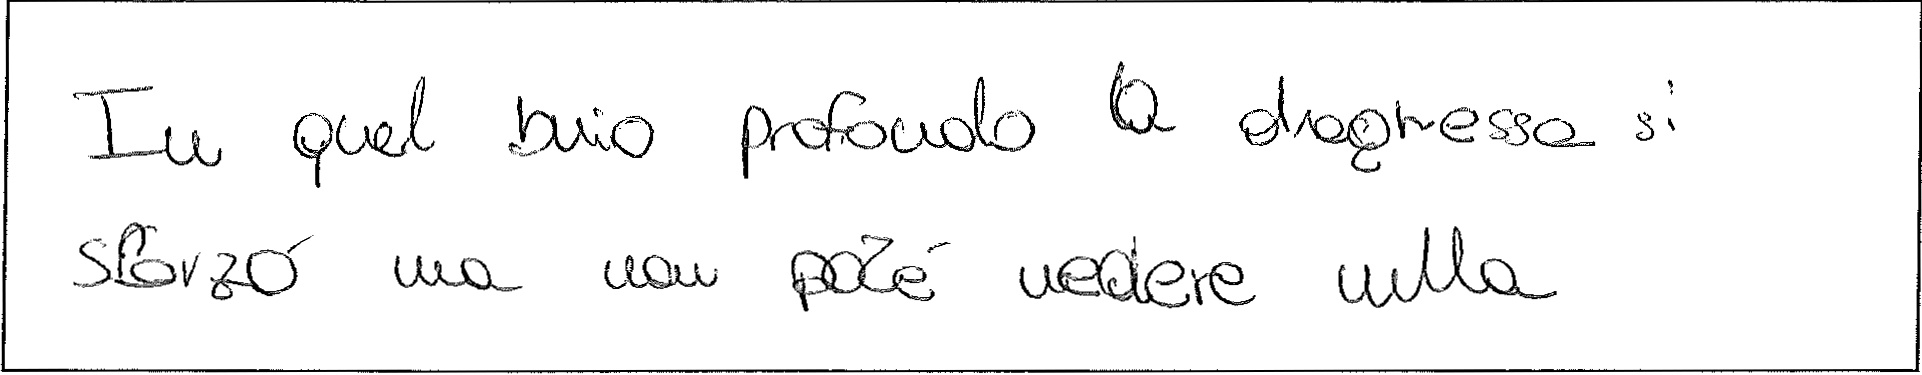 In quel buio profondo la draghessa si
sforzó ma non poté vedere nulla